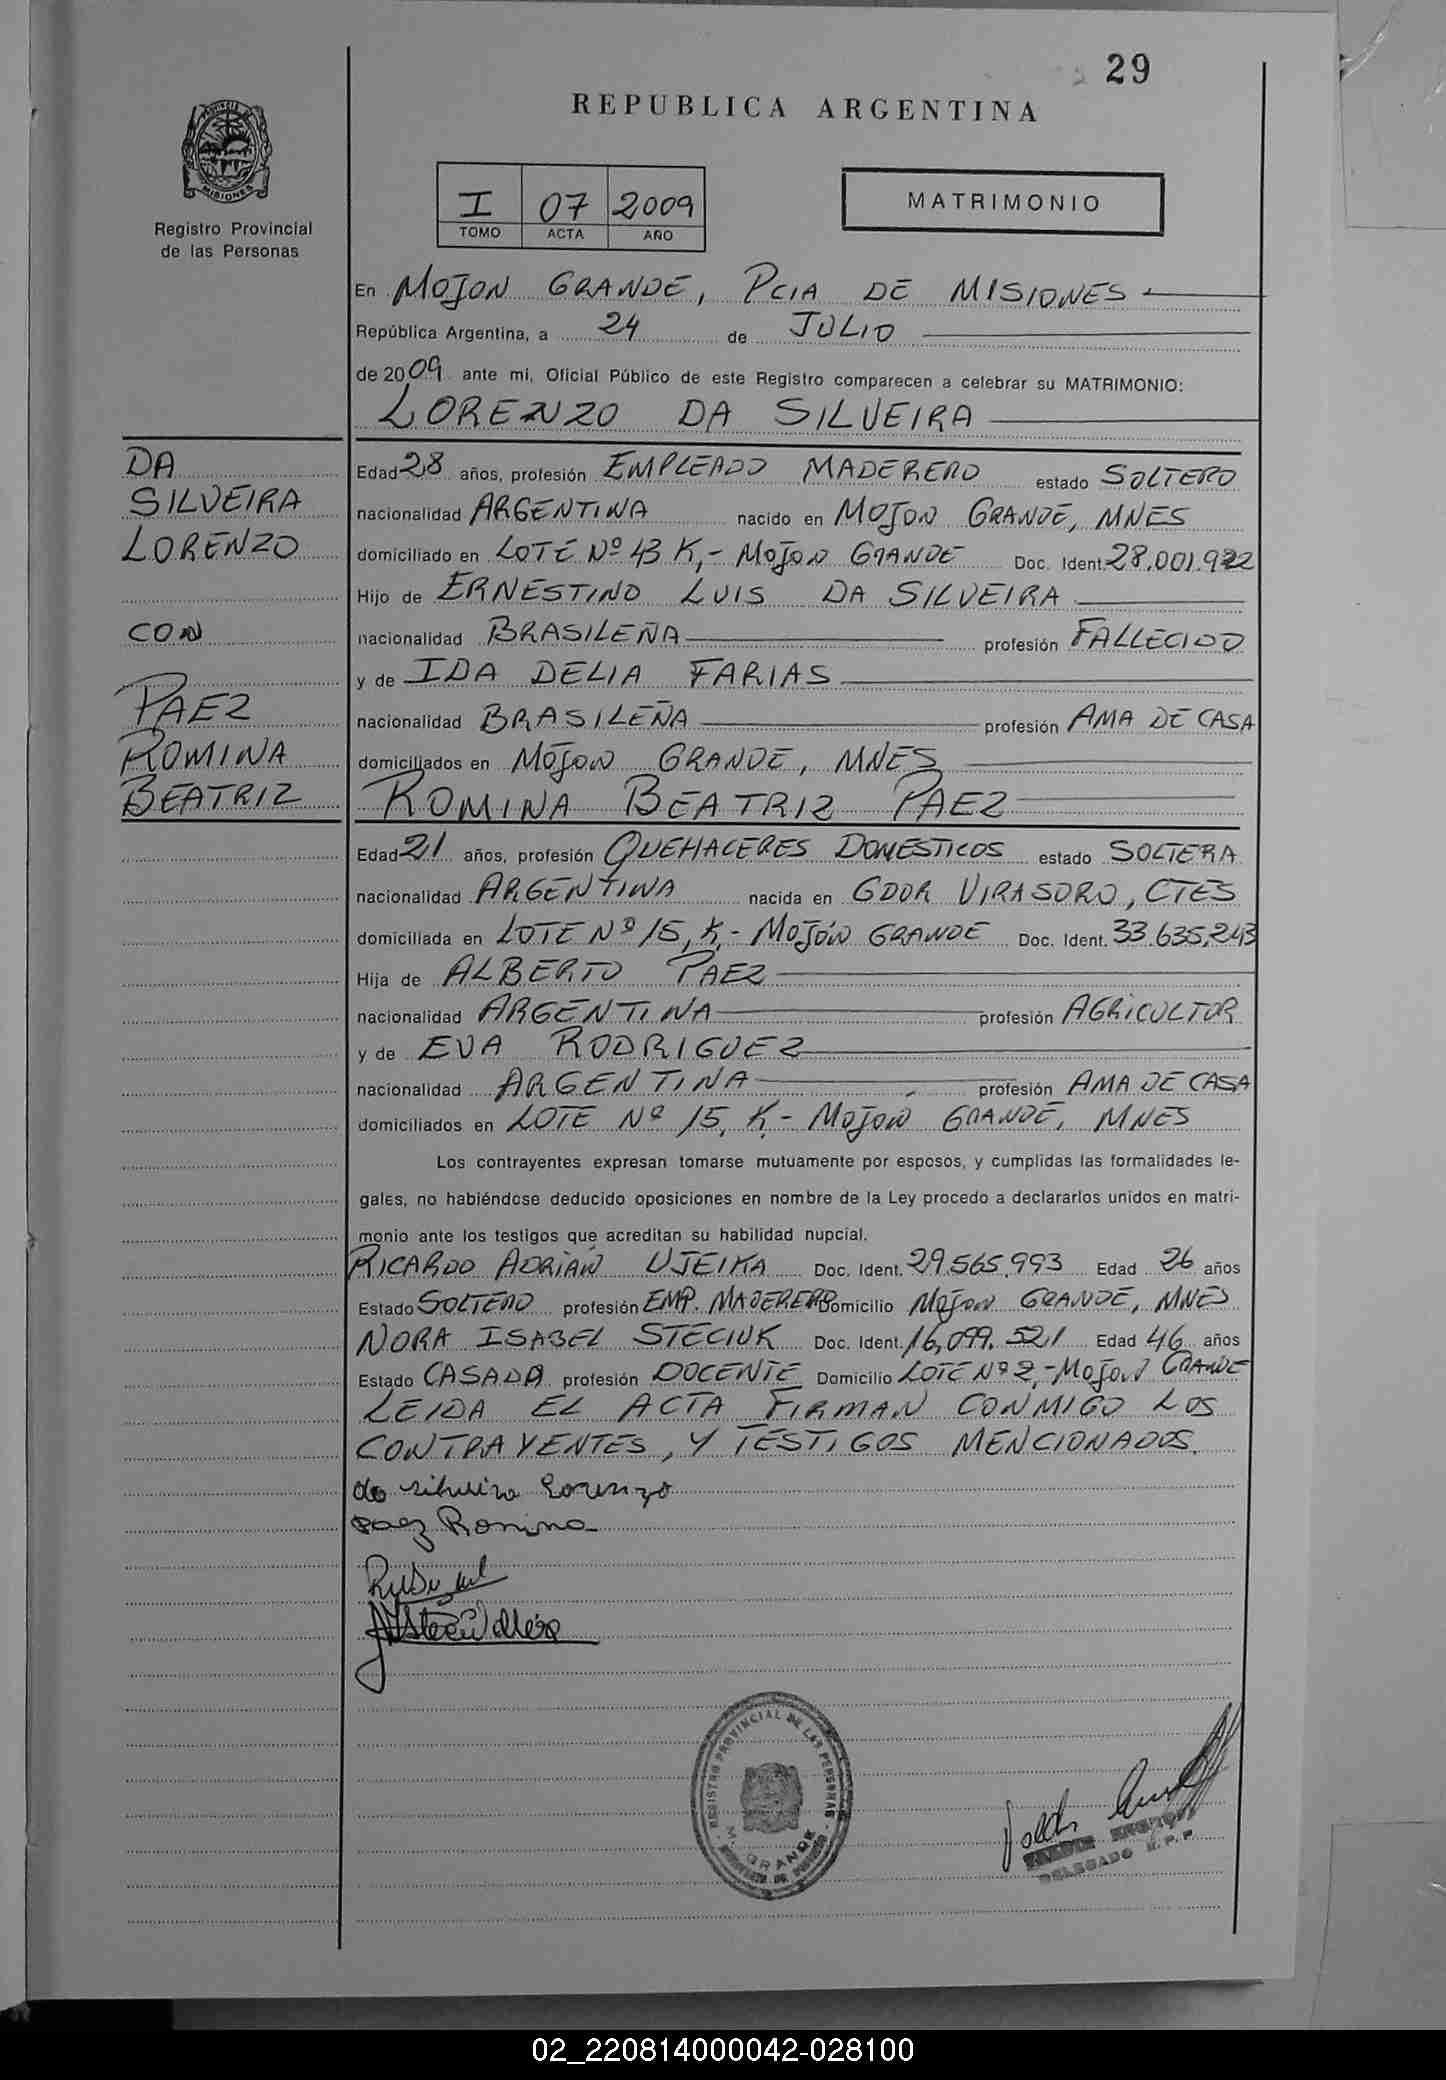 29
REPUBLICA ARGENTINA
PROVINCIA DE MISIONES
Registro Provincial
de las Personas
I 07 2009
TOMO ACTA AÑO
MATRIMONIO
En MOJON GRANDE, PCIA DE MISIONES
República Argentina, a 24 de JULIO
de 2009 ante mi, Oficial Público de este Registro comparecen a celebrar su MATRIMONIO:
LORENZO DA SILVEIRA
DA
SILVEIRA
LORENZO
CON
PAEZ
ROMINA
BEATRIZ
Edad 28 años, profesión EMPLEADO MADERERO estado SOLTERO
nacionalidad ARGENTINA nacido en MOJON GRANDE, MNES
domiciliado en LOTE Nº 43 K,- MOJON GRANDE Doc. Ident. 28.001.922
Hijo de ERNESTINO LUIS DA SILVEIRA
nacionalidad BRASILEÑA profesión FALLECIDO
y de IDA DELIA FARIAS
nacionalidad BRASILEÑA profesión AMA DE CASA
domiciliados en MOJON GRANDE, MNES
ROMINA BEATRIZ PAEZ
Edad 21 años, profesión QUEHACERES DOMESTICOS estado SOLTERA
nacionalidad ARGENTINA nacida en GDOR VIRASORO, CTES
domiciliada en LOTE Nº 15, K,- MOJÓN GRANDE Doc. Ident. 33.635.243
Hija de ALBERTO PAEZ
nacionalidad ARGENTINA profesión AGRICULTOR
y de EVA RODRIGUEZ
nacionalidad ARGENTINA profesión AMA DE CASA
domiciliados en LOTE Nº 15, K,- MOJÓN GRANDE, MNES
Los contrayentes expresan tomarse mutuamente por esposos, y cumplidas las formalidades le-
gales, no habiéndose deducido oposiciones en nombre de la Ley procedo a declararlos unidos en matri-
monio ante los testigos que acreditan su habilidad nupcial.
RICARDO ADRIÁN UJEIKA Doc. Ident. 29.565.993 Edad 26 años
Estado SOLTERO profesión EMP. MADERERO Domicilio MOJON GRANDE, MNES
NORA ISABEL STECIUK Doc. Ident. 16.099.521 Edad 46 años
Estado CASADA profesión DOCENTE Domicilio LOTE Nº 2,- MOJON GRANDE
LEIDA EL ACTA FIRMAN CONMIGO LOS
CONTRAYENTES, Y TESTIGOS MENCIONADOS.
da silveira Lorenzo
paez Romina
REGISTRO PROVINCIAL DE LAS PERSONAS
M. GRANDE
DELEGADO R.P.P.
02_220814000042-028100